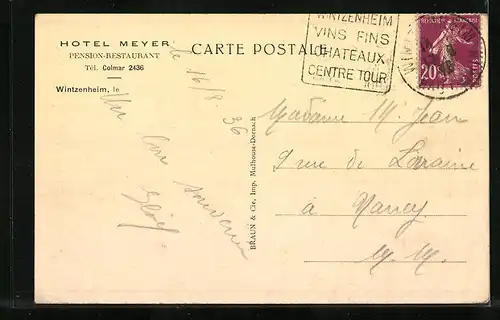 HOTEL MEYER
PENSION-RESTAURANT
Tél. Colmar 2436
Wintzenheim, le
le 16/8 36
Un bon souvenir
CARTE POSTALE
WINTZENHEIM
VINS FINS
CHATEAUX
CENTRE TOUR
20
BRAUN & Cie, Imp. Mulhouse-Dornach
Madame M. Jean
9 rue de Lorraine
à Nancy
M. M.